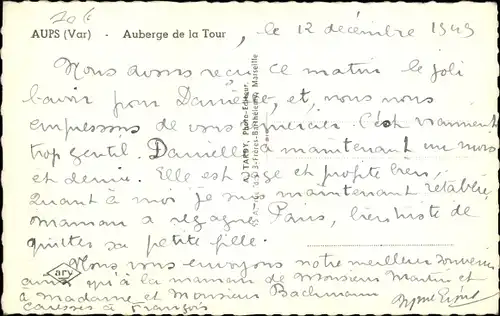 20 €
AUPS (Var) - Auberge de la Tour
, le 12 décembre 1949
Nous avons reçu ce matin le joli
bavoir pour Danièle, et, nous nous
empressons de vous remercier. C'est vraiment
trop gentil. Danielle a maintenant un mois
et demi. Elle est sage et profite bien.
Quant à moi je suis maintenant rétablie,
maman a regagné Paris, bien triste de
quitter sa petite fille.
Nous vous envoyons notre meilleur souvenir
ainsi qu'à la maman de Monsieur Martin et
à Madame et Monsieur Bachmann
caresses à François
A. TARDY, Photo-Editeur
3, Frères-Barthélemy, Marseille
arv